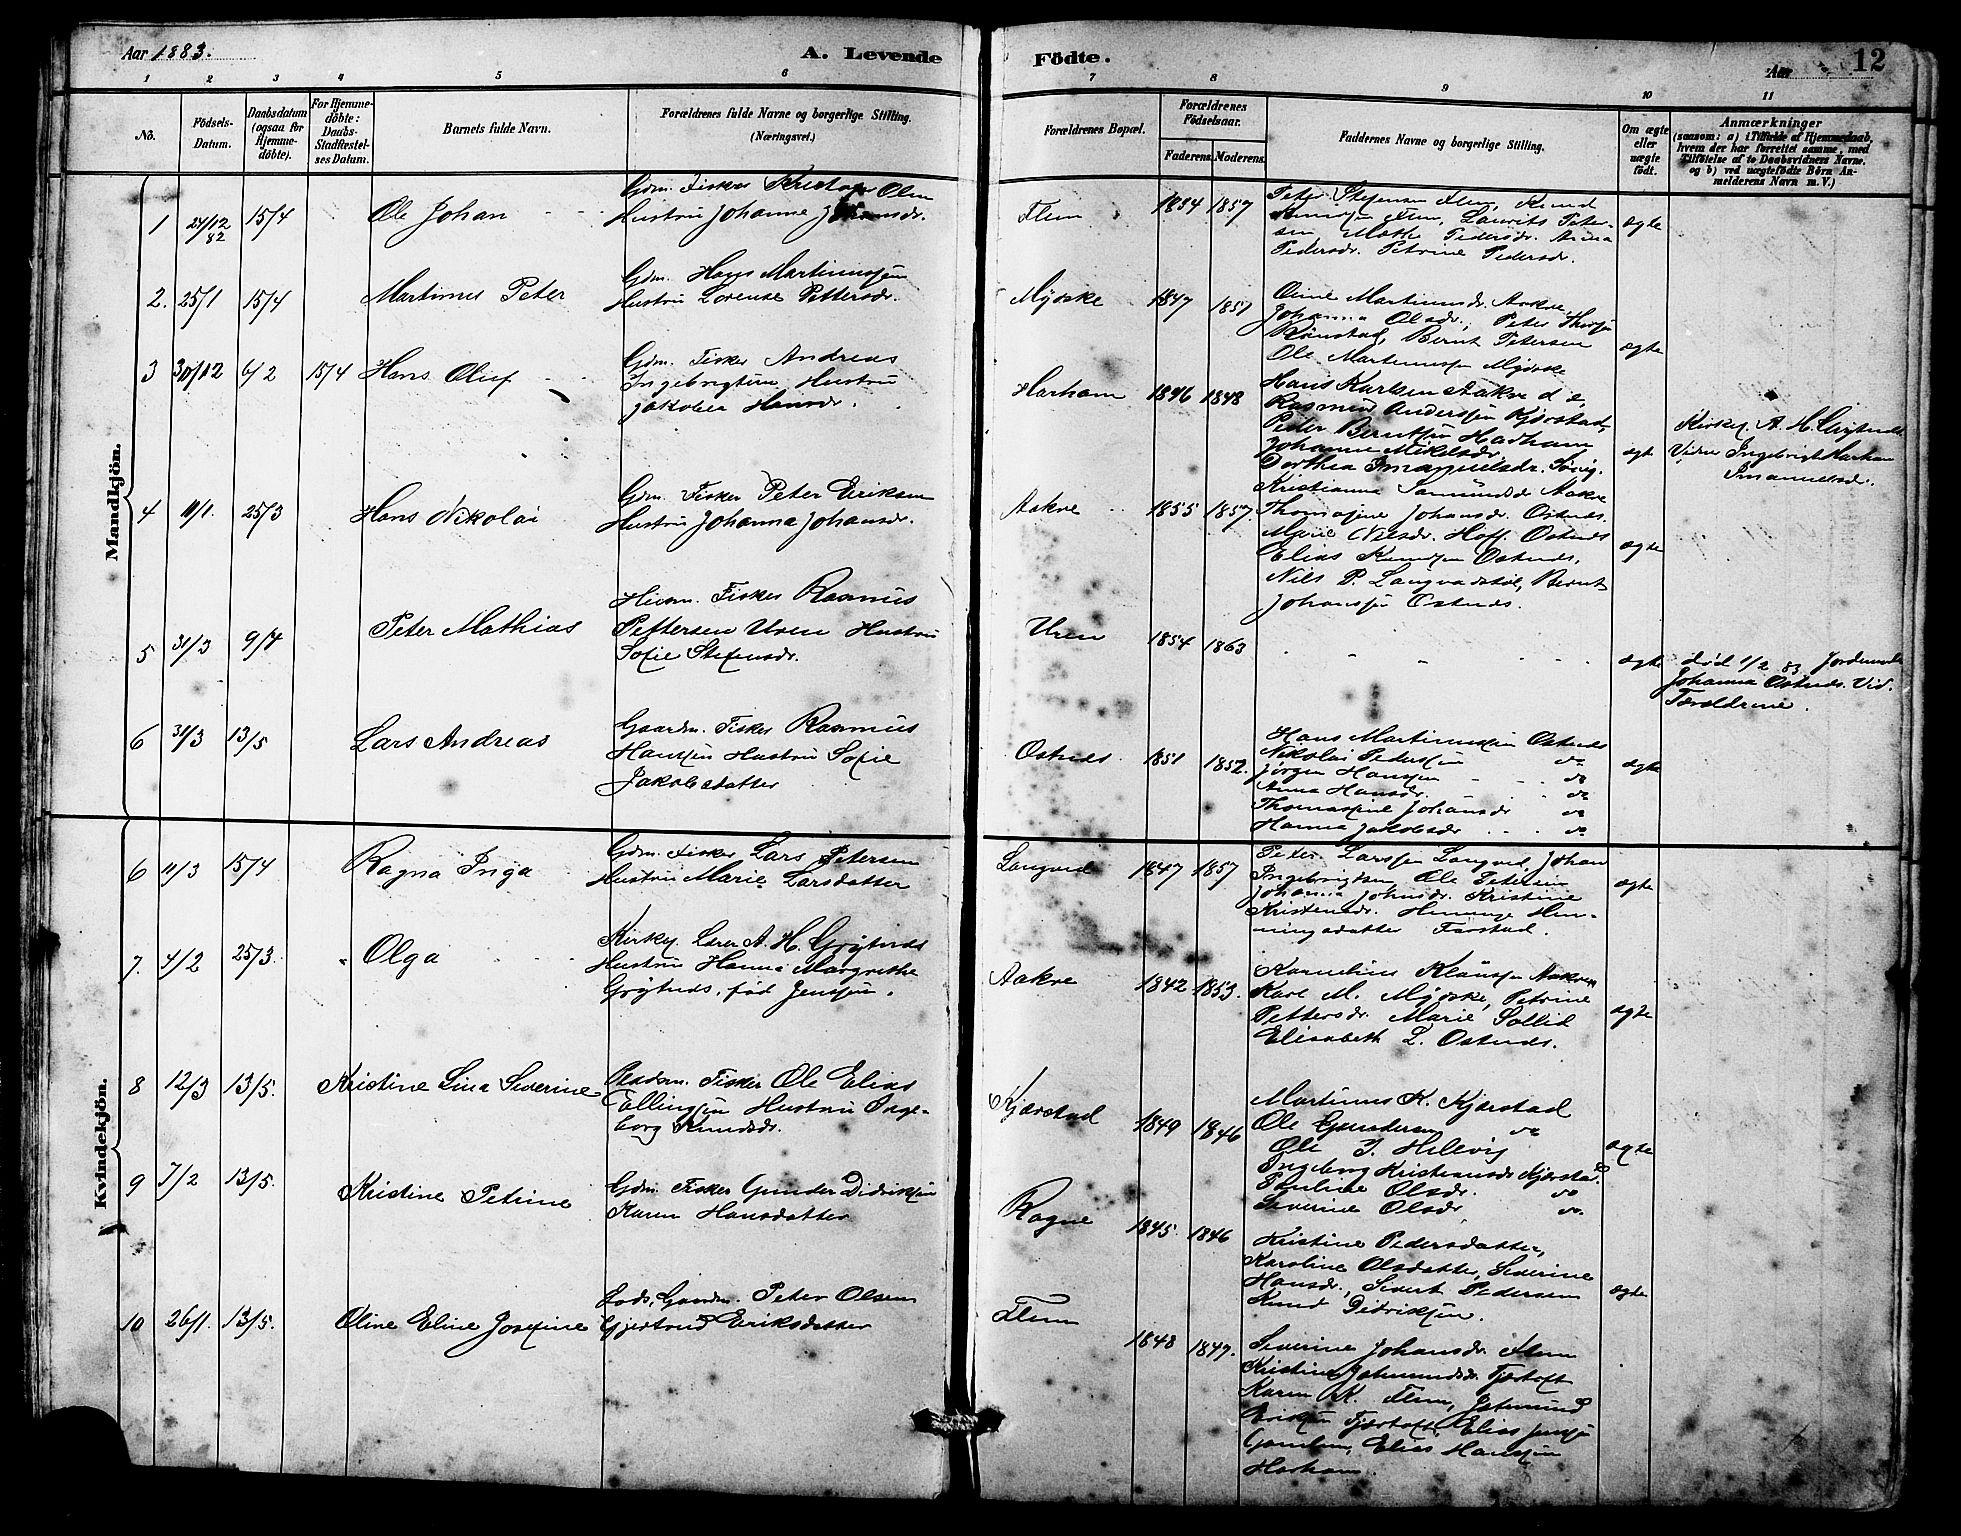 Aar 1883.
A. Levende
Födte.
Aar
12
1 2 3 4 5 6 7 8 9 10 11
No.
Födsels-
Datum.
Daabsdatum
(ogsaa for
Hjemme-
döbte).
For Hjemme-
döbte:
Daabs-
Stadfæstel-
ses Datum.
Barnets fulde Navn.
Forældrenes fulde Navne og borgerlige Stilling.
(Næringsvei.)
Forældrenes Bopæl.
Forældrenes
Födselsaar.
Faderens.
Moderens.
Faddernes Navne og borgerlige Stilling.
Om ægte
eller
uægte
födt.
Anmærkninger
(saasom: a) i Tilfælde af Hjemmedaab,
hvem der har forrettet samme, med
Tilföielse af to Daabsvidners Navne,
og b) ved uægtefödte Börn An-
melderens Navn m. V.)
Mandkjön.
1 24/12 82 15/4 Ole Johan
Gdm. Fisker Kristofer Olsen
Hustru Johanne
Flem 1854 1857
Peter Stefensen Flem, Knud
Flem, Laurits Peter-
sen Mathe Pedersdr. Anna
Pedersdr. Petrine Pedersdr.
ægte
2. 25/1 15/4 Martinus Peter
Gdm. Hans Martinussen
Hustru Lorense Pettersdr.
Myrske 1847 1851
Oline Martinusdr. Aakre
Johanna Olsdr., Peter
Rönstad, Bernt Petersen
Ole Martinussen Myrske
ægte
3 30/12 6/2 15/4 Hans Oluf
Gdm. Fisker Andreas
Ingebrigtsen Hustru
Jakobea Hansdr.
Harham 1846 1848
Hans Karlsen Aakre
Rasmus Anderssen Kjerstad,
Peder Berntsen Hadham
Johanne Mikelsdr.
Dorthea Imanuelsdr. Søvig.
ægt
Kirksg. A. H. Grytnes.
Vidne Ingebrigt Harham
Imanuelsdr.
4 11/1. 25/3 Hans Nikolai
Gdm. Fisker Peter Eriksen
Hustru Johanna Johansdr.
Aakre 1855 1857.
Kristianna Samundsdr Aakre
Thomasine Johansdr. Ostnes.
Marie Nilsdr. Hoff. Ostnes
Elias Knudsen Ostnes,
Nils P. Langvadstöl, Bernt
Johanssen Ostnes.
ægte
5 31/3 9/4 Peter Mathias
Husm. Fisker Rasmus
Pettersen Uren Hustru
Sofie Stefensdr.
Uren 1854 1863
ægte
død 1/2 83 Jordemoder
Johanna Ostnes. Vid.
Forældrene.
6 31/3 13/5 Lars Andreas
Gaardm. Fisker Rasmus
Hanssen Hustru Sofie
Jakobsdatter
Ostnes. 1851 1852.
Hans Martinussen Ostnes
Nikolai Pederssen do
Jørgen Hanssen do
Anna Hansdr. do
Thomassine Johansdr do
Hanna Jakobsdr do
ægte
Kvindekjön.
6 11/3 15/4 Ragna Inga
Gdm. Fisker Lars Petersen
Hustru Marie Larsdatter
Langved 1847 1857
Peter Larssen Langved, Johan
Ingebrigtsen, Ole Petersen
Johanna Johnsdr. Kristine
Kristensdr. Hen-
ningsdatter Farstad.
ægte
7. 4/2 25/3. Olga
Kirksg. Lærer A. H. Grytnes
Hustru Hanna Margrethe
Grytnes, fød Jenssen.
Aakre 1842 1853.
Kornelius Klaussen Aakre
Karl M. Myrske, Petrine
Pettersdr. Marie Sollid
Elisabeth L. Ostnes.
ægte
8 12/3 13/5. Kristine Lina Severine
Fisker Ole Elias
Ellingsen Hustru Inge-
borg Knudsdr.
Kjerstad 1849 1846
Martinus K. Kjerstad
Ole Gundersen do
Ole I. Hellvig
Ingeborg Kristiansdr Kjerstad.
Pauline Olsdr. do
Severine Olsdr. do
ægte
9 7/2 13/5. Kristine Petrine
Gdm. Fisker Gunder Didriksen
Karen Hansdatter
Rogne 1845. 1846
Kristine Pedersdatter,
Karoline Olsdatter, Severine
Hansdr., Sivert Pedersen
Knud Didriksen.
ægte
10 26/1. 13/5. Oline Eline Josefine
Lods, Gaardm. Peter Olsen
Gjertrud Eriksdatter
Flem 1848 1847.
Severine Johansdr Flem
Kristine Fjørtoft
Karen K. Flem,
Eriksen Fjørtoft, Elias Jenssen
Elias Hanssen
Harham.